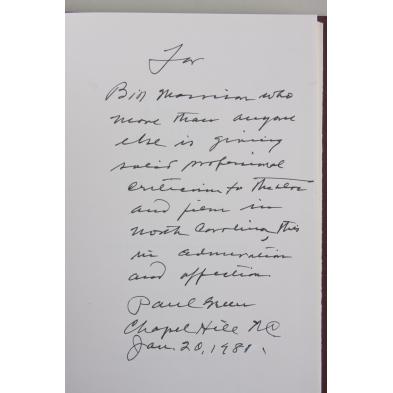 For
Bill Morrison who
more than anyone
else is giving
solid professional
criticism to theatre
and film in
North Carolina, this
in admiration
and affection.
Paul Green
Chapel Hill NC
Jan. 20, 1981.